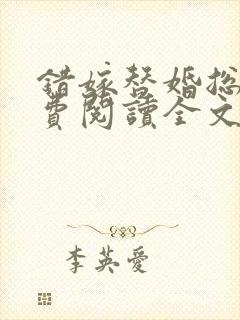 錯嫁替婚總
費閱讀全文
李英愛